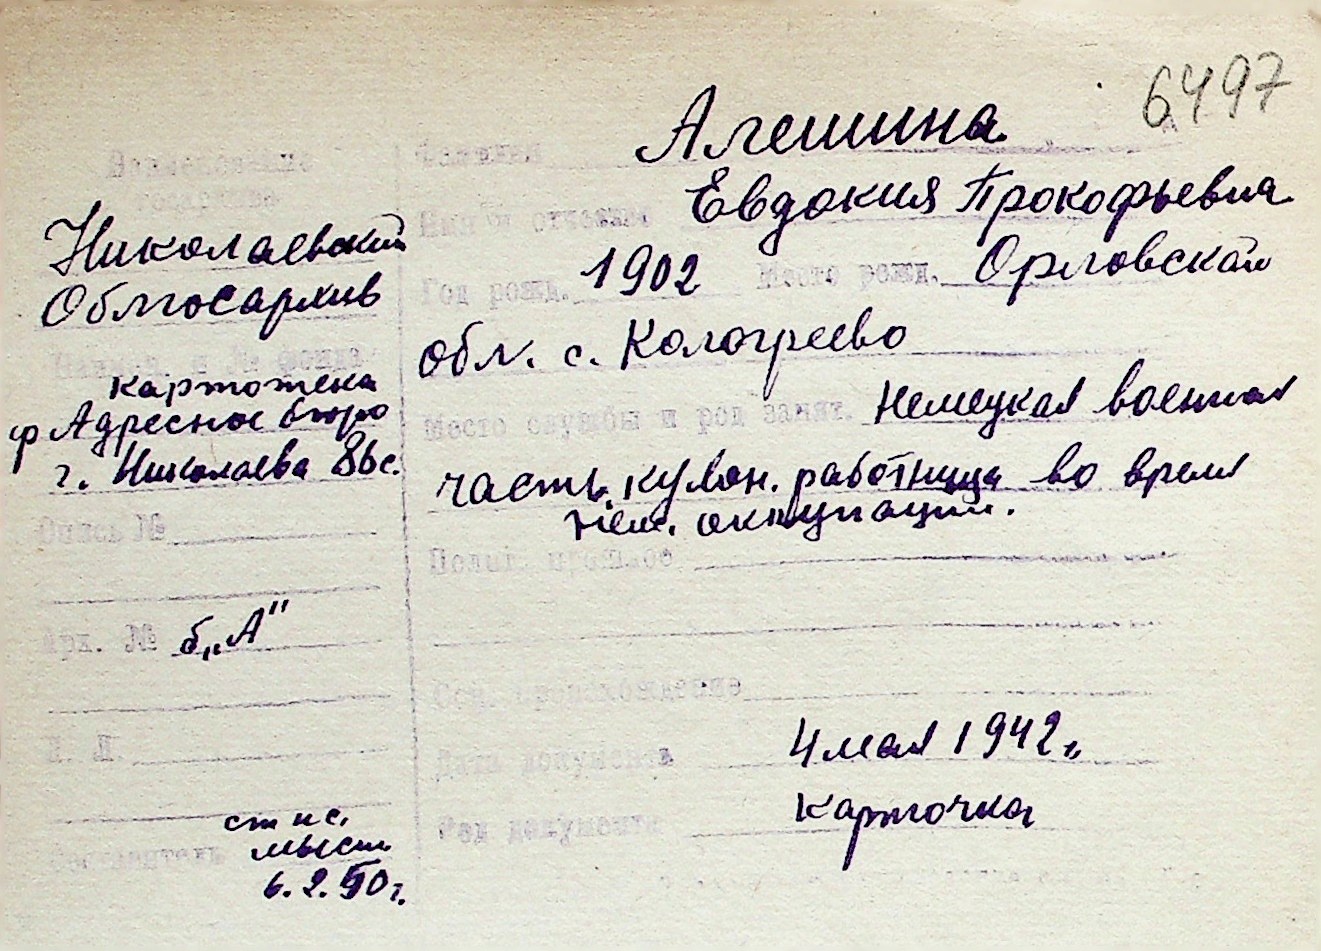 6497
Наименование
госархива
Николаевский
Облгосархив
картотека
ф Адресное бюро
г. Николаева 86с.
Опись №
Арх. № б„А"
К. Л.
ст нс.
мыст
6.2.50г.
Фамилия Алешина
Имя и отчество Евдокия Прокофьевна
Год рожд. 1902 Место рожд. Орловская
обл. с. Кологреево
Место службы и род занят. Немецкая военная
часть, кухон. работница во время
Нем. оккупации.
Полит. прошлое
Соц. происхождение
Дата документа 4 мая 1942 г.
Вид документа Карточка